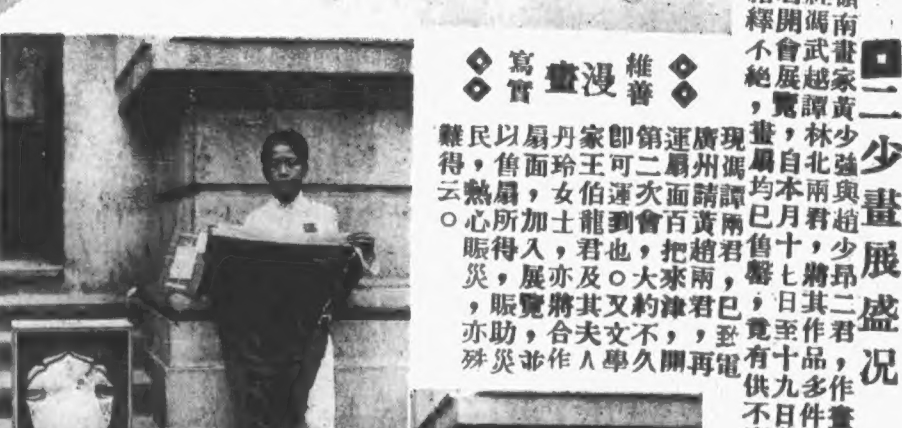 二少畫展盛况
南畫家黃少強與趙少昂二君，作畫
經馮武越譚林北兩君，將其作品多件
開會展覽，自本月十七日至十九日
繹不絕，畫扇均已售罄，竟有供不
維善
漫畫
寫實
現馮譚兩君，已致電
廣州請黃趙兩君，再
運扇面百把來津，開
第二次會，大約不久
卽可運到也。又文學
家王伯龍君及其夫人
丹玲女士，亦將合作
扇面，加入展覽，並
以售扇所得，賑助災
民，熱心賑災，亦殊
難得云。